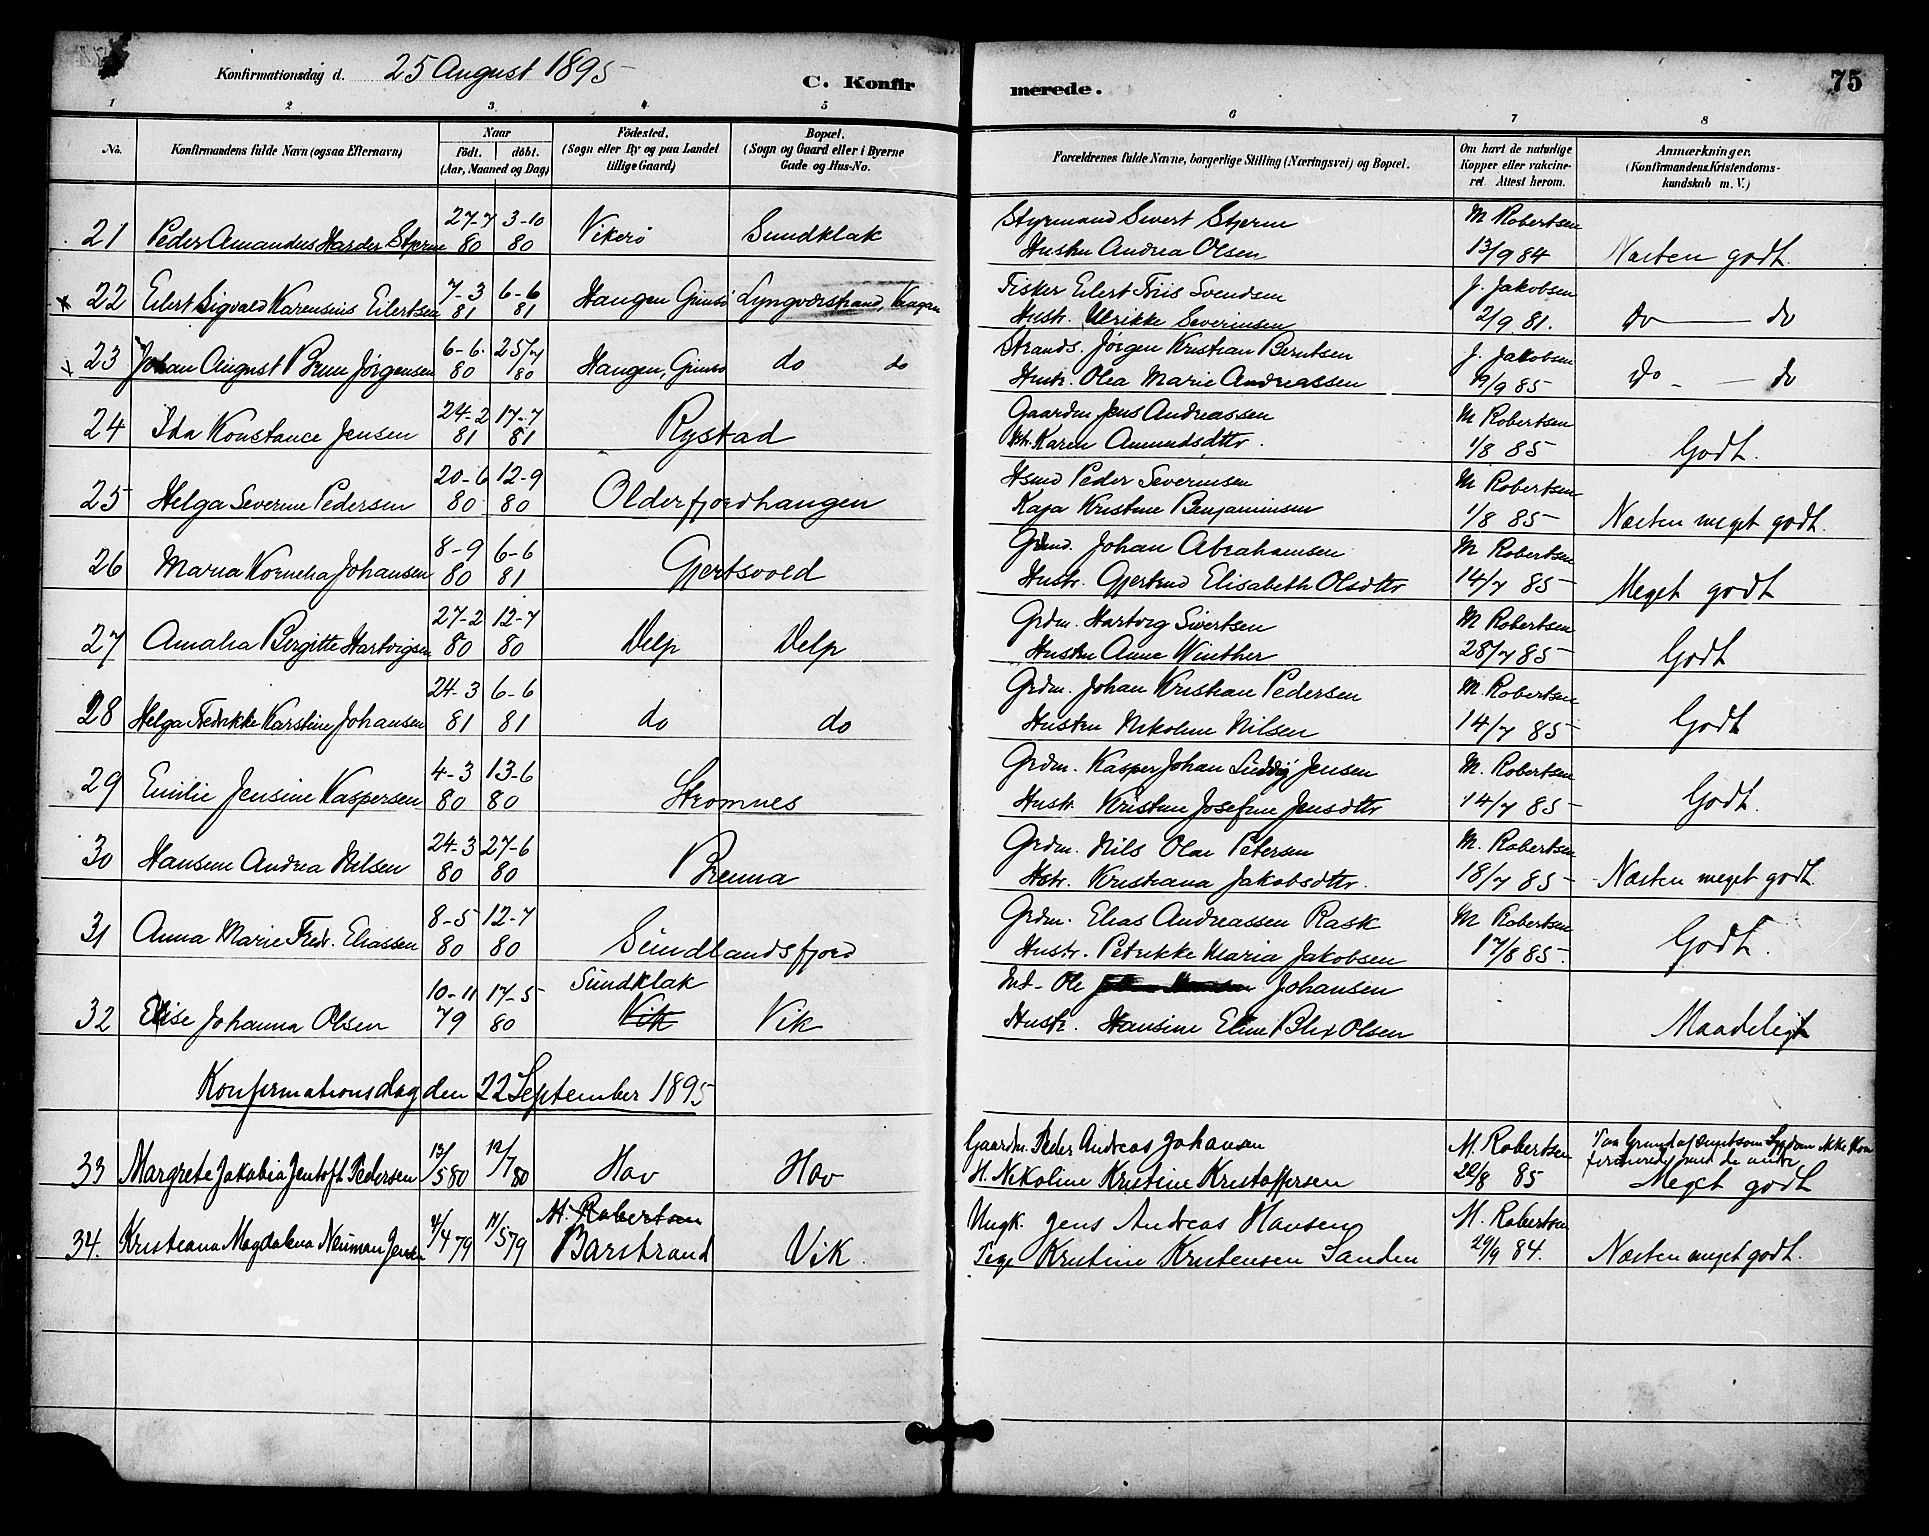 Konfirmationsdag d. 25 August 1895 C. Konfirmerede. 75
1 2 3 4 5 6 7 8
No. Konfirmandens fulde Navn (ogsaa Efternavn) Naar født. døbt. (Aar, Maaned og Dag) Fødested. (Sogn eller By og paa Landet tillige Gaard) Bopæl. (Sogn og Gaard eller i Byerne Gade og Hus-No. Forældrenes fulde Navne, borgerlige Stilling (Næringsvei) og Bopæl. Om havt de naturlige Kopper eller vakcineret. Attest herom. Anmærkninger. (Konfirmandens Kristendomskundskab m. V.)
27-7 3-10 Styrmand Sivert Stjern M Robertsen
21 Peder Amandus Harder Stjern 80 80 Vikerö Sundklak Hustru Andrea Olsen 13/9 84 Næsten godt.
7-3 6-6 Fisker Eilert Friis Svendsen J. Jakobsen
x 22 Eilert Sigvald Karensius Eilertsen 81 81 Haugen Gimsö Lyngværstrand, Vaagan Hustr. Ulrikke Severinsen 2/9 81. Do do
6-6. 25/7 Strands. Jørgen Kristian Berntsen J. Jakobsen
x 23 Johan August Brun Jørgensen 80 80 Haugen, Gimsö do do Hustr. Olea Marie Andreassen 19/9 85 Do - - do
24-2 17-7 Gaardm Jens Andreassen M Robertsen
24 Ida Konstance Jensen 81 81 Rystad Hstr. Karen Amundsdttr. 1/8 85 Godt.
20-6 12-9 Hsmd Peder Severinsen M Robertsen
25 Helga Severine Pedersen 80 80 Olderfjordhaugen Kaja Kristine Benjaminsen 1/8 85 Næsten meget godt.
8-9 6-6 Johan Abrahamsen M Robertsen
26 Maria Kornelia Johansen 80 81 Gjertsvold Hustr. Gjertrud Elisabeth Olsdttr 14/7 85 Meget godt
27-2 12-7 Grdm. Hartvig Sivertsen M Robertsen
27 Amalia Bergitte Hartvigsen 80 80 Velp Velp Hustru Anne Winther 28/7 85 Godt
24-3 6-6 Grdm. Johan Kristian Pedersen M. Robertsen
28 Helga Fredrikke Karstine Johansen 81 81 do do Hustru Nikoline Nilsen 14/7 85 Godt
4-3 13-6 Grdm. Kasper Johan Luddig Jensen M. Robertsen
29 Emilie Jensine Kaspersen 80 80 Strömnes Hustr. Kristine Josefine Jensdttr 14/7 85 Godt.
24-3 27-6 Grdm. Nils Olai Petersen M. Robertsen
30 Hansine Andrea Nilsen 80 80 Brenna Hstr. Kristiana Jakobsdttr. 18/7 85 Næsten meget godt.
8-5 12-7 Grdm. Elias Andreassen Rask M Robertsen
31 Anna Marie Fredr. Eliassen 80 80 Sundlandsfjord Hustr. Petrikke Maria Jakobsen 17/8 85. Godt.
10-11 17-5 Sundklak Ind- Ole Johansen
32 Elise Johanna Olsen 79 80 Vik Vik Hustr. Hansine Eline Blix Olsen Maadeligt
Konfirmationsdag den 22 September 1895
13/5 80 12/7 80 Gaardm. Peder Andreas Johansen M. Robertsen Paa Grund af smitsom Sygdom ikke konfirmerede med de andre
33 Margrete Jakobia Jentoft Pedersen Hov Hov H. Nikoline Kristine Kristoffersen 22/8 85 Meget godt
M. Robertsen Ungk. Jens Andreas Hansen M. Robertsen
34. Kristiana Magdalena Neuman Jensen 4/4 79 11/5 79 Barstrand Vik. Pige Kristine Kristensen Sanden 29/9 84. Næsten meget godt.